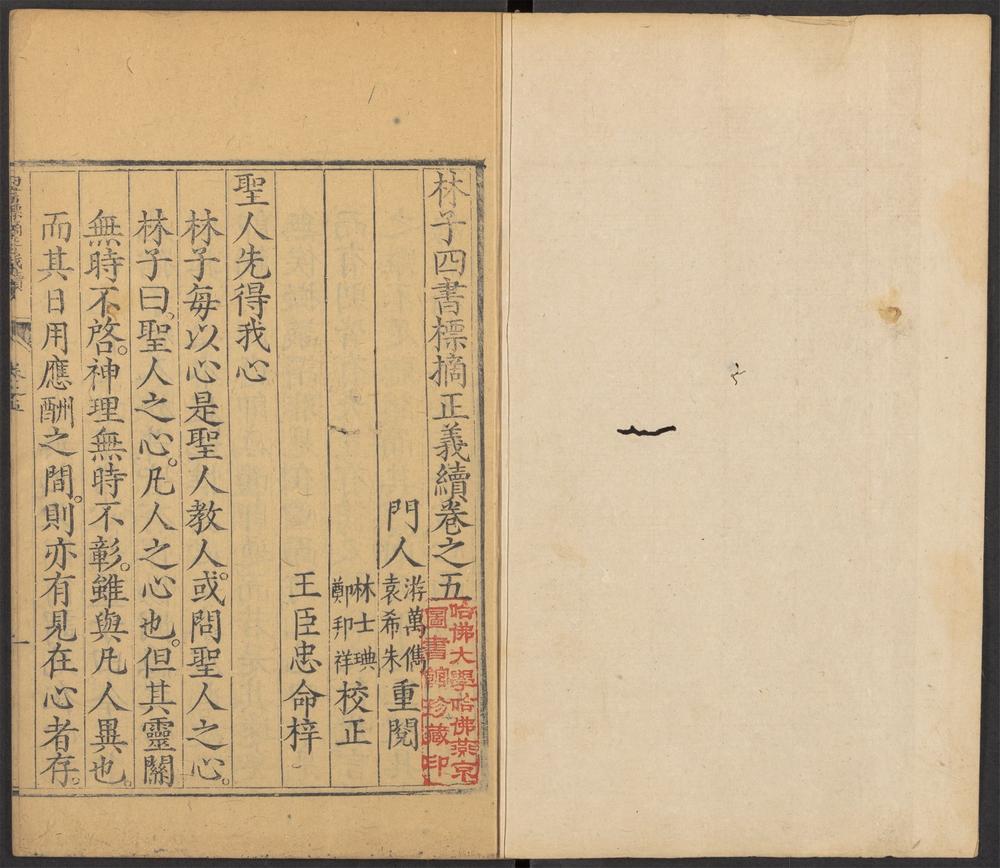 林子四書標摘正義續卷之五
門人
游萬儁
袁希朱
重閱
林士㻉
鄭邦祥
校正
王臣忠命梓
聖人先得我心
林子每以心是聖人教人。或問聖人之心。
林子曰。聖人之心。凡人之心也。但其靈關
無時不啓。神理無時不彰。雖與凡人異也。
而其日用應酬之間。則亦有見在心者存。
卷之五
一
哈佛大學哈佛燕京
圖書館珍藏印